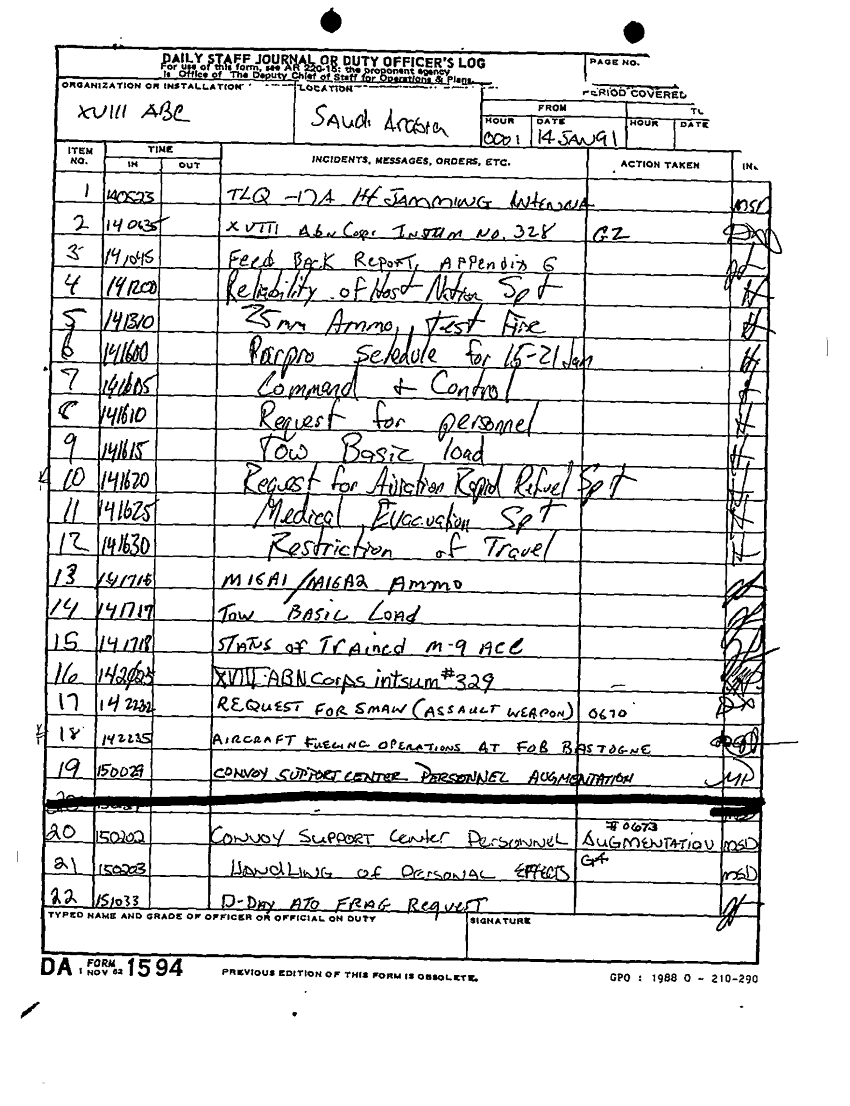 DAILY STAFF JOURNAL OR DUTY OFFICER'S LOG
For use of this form, see AR 220-15: the proponent agency
is Office of The Deputy Chief of Staff for Operations & Plans.
PAGE NO.
ORGANIZATION OR INSTALLATION
LOCATION
PERIOD COVERED
XVIII ABC
Saudi Arabia
FROM
HOUR DATE HOUR DATE
0001 14 JAN 91
ITEM NO. TIME IN OUT INCIDENTS, MESSAGES, ORDERS, ETC. ACTION TAKEN
1 140523 TLQ-17A Hf JAMMING ANTENNA MSD
2 140635 XVIII Abn Corp INTSUM NO. 328 G2
3 141045 Feed BACK REPORT, APPendix G
4 141200 Reliability of Host Nation Spt
5 141310 25mm Ammo, Test Fire
6 141600 Parpro Schedule for 15-21 Jan
7 141605 Command & Control
8 141610 Request for personnel
9 141615 Tow Basic load
10 141620 Request for Aviation Rapid Refuel Spt
11 141625 Medical Evacuation Spt
12 141630 Restriction of Travel
13 141716 M16A1/M16A2 Ammo
14 141717 Tow BASIC LOAD
15 141718 STATUS of Trained M-9 ACE
16 XVIII ABN Corps intsum #329
17 142232 REQUEST FOR SMAW (ASSAULT WEAPON) 0670
18 142235 AIRCRAFT FUELING OPERATIONS AT FOB BASTOGNE
19 150029 CONVOY SUPPORT CENTER PERSONNEL AUGMENTATION MP
# 0673
20 150202 CONVOY SUPPORT Center Personnel AUGMENTATION MSD
21 150203 HANDLING of Personal EFFECTS G4 MSD
22 151033 D-DAY ATO FRAG Request
TYPED NAME AND GRADE OF OFFICER OR OFFICIAL ON DUTY
SIGNATURE
DA FORM 1 NOV 62 1594
PREVIOUS EDITION OF THIS FORM IS OBSOLETE.
GPO : 1988 O - 210-290